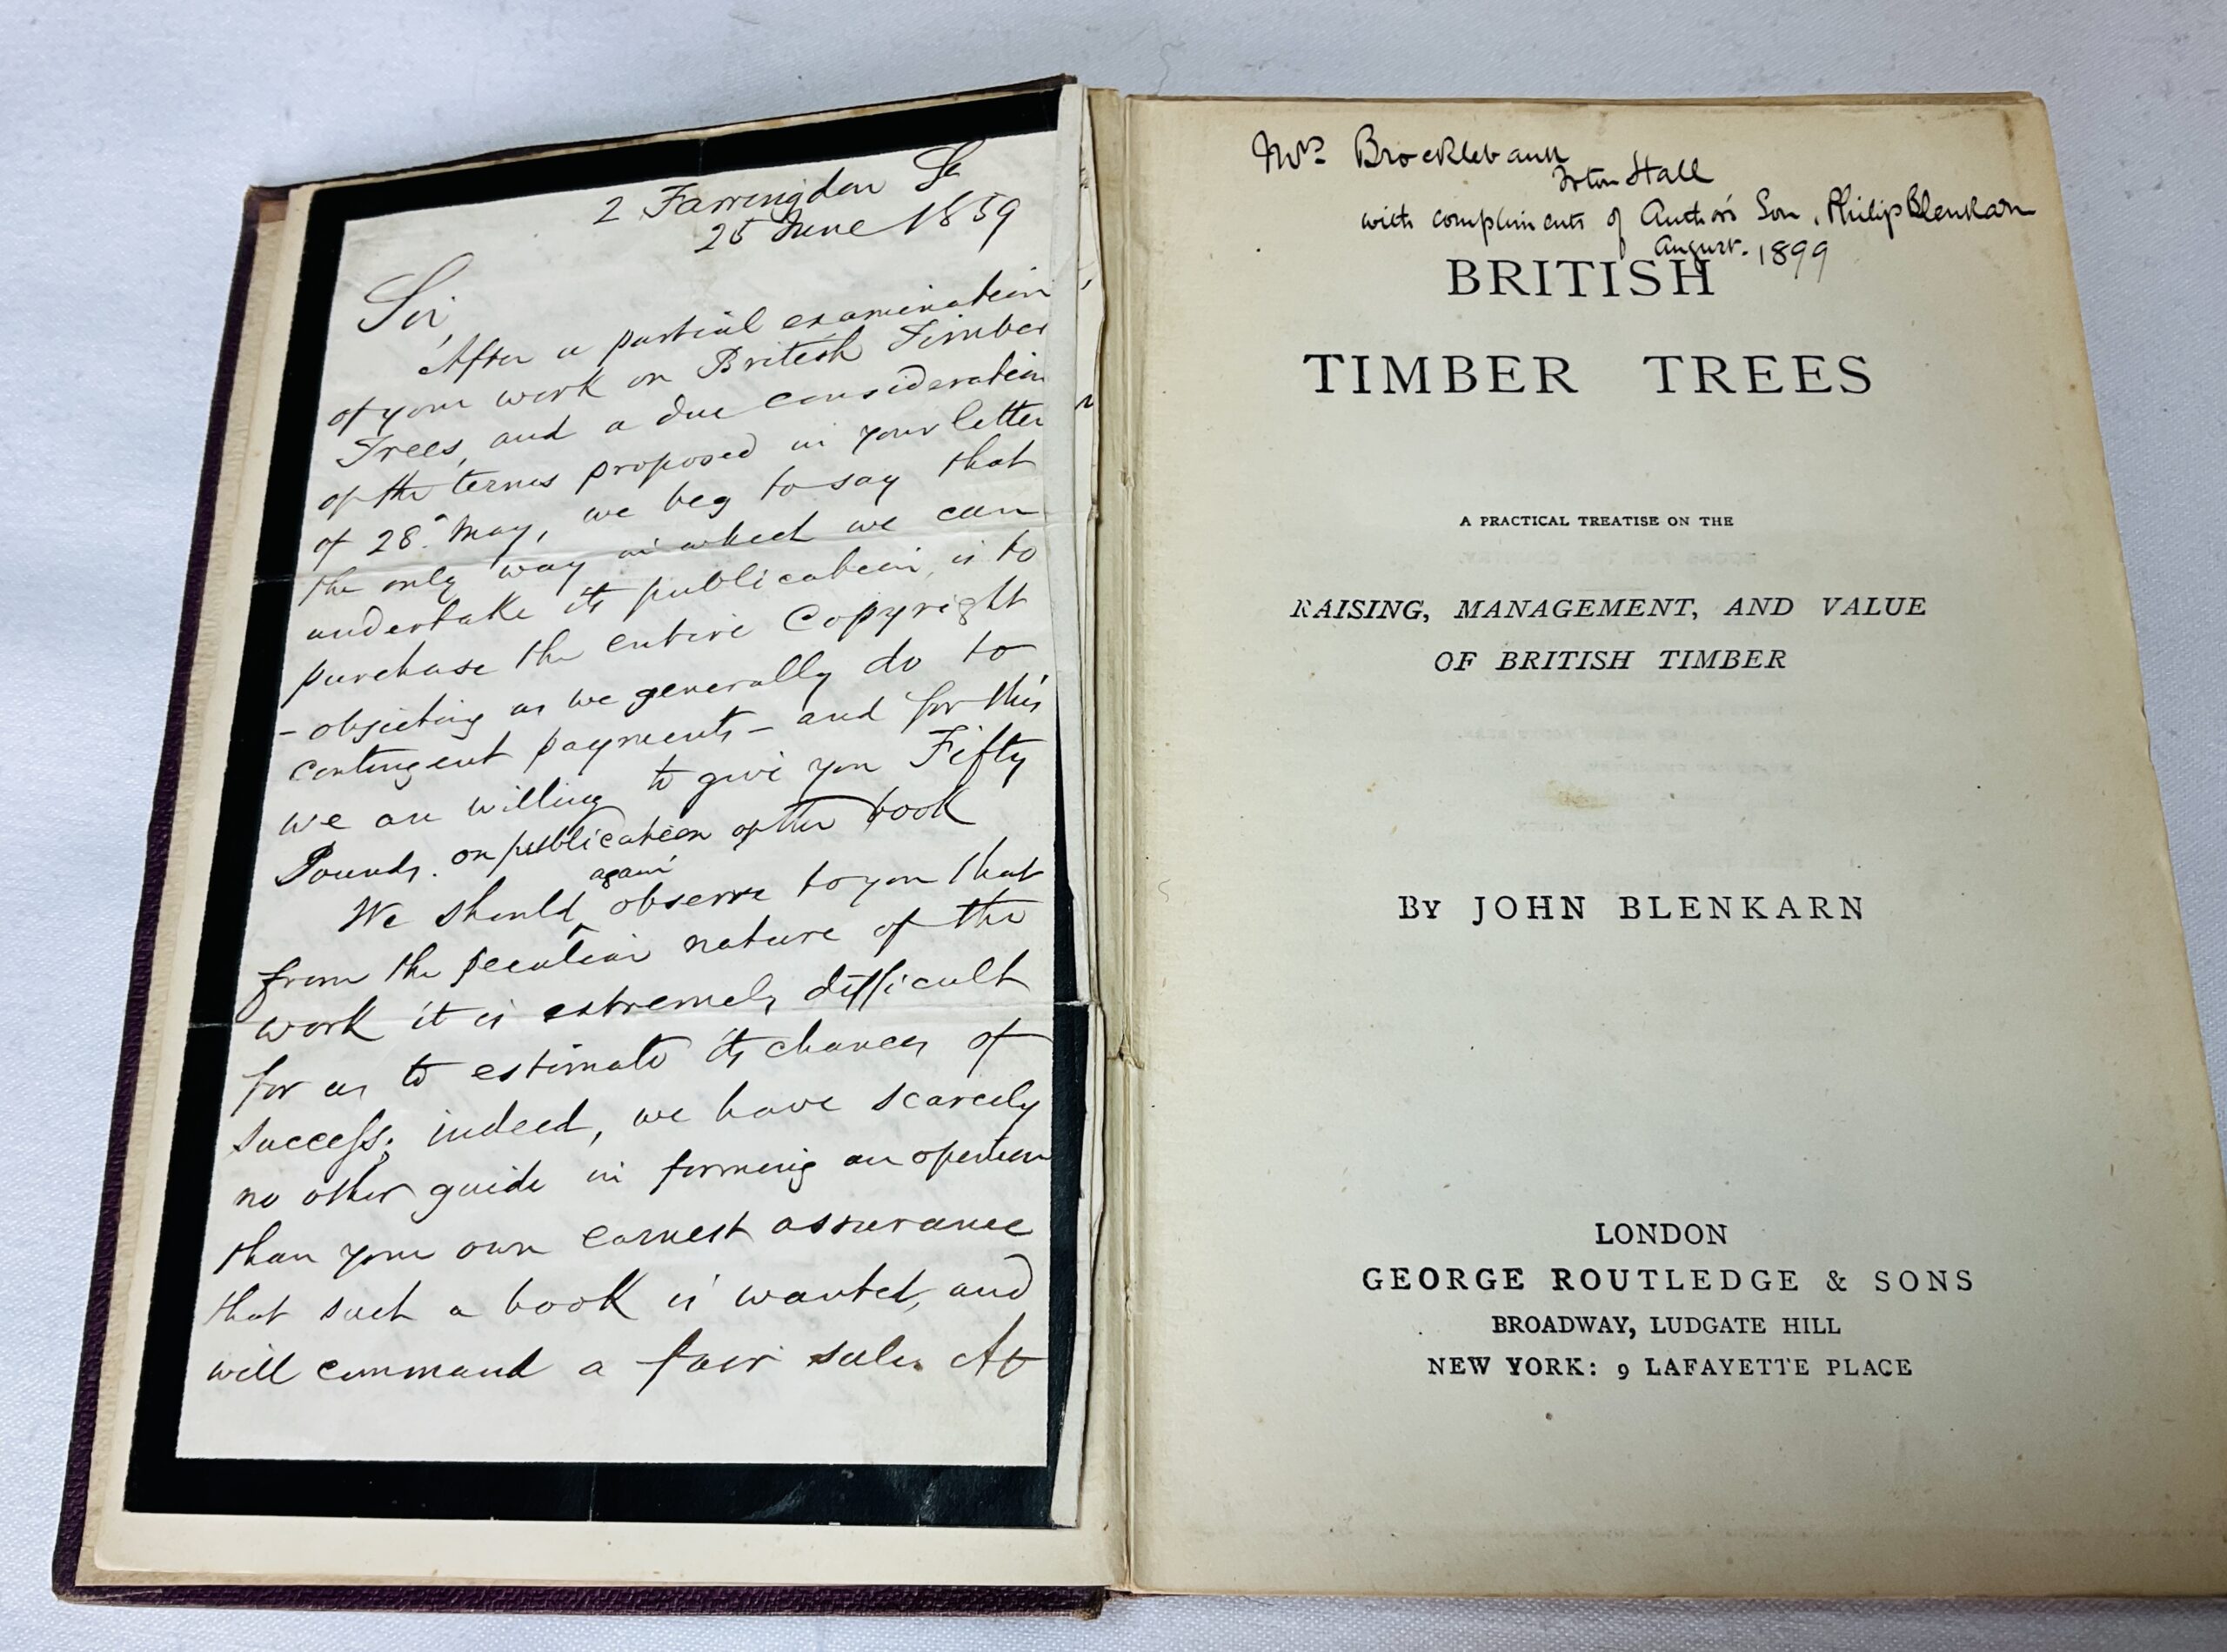 2 Farringdon St
25 June 1859
Sir,
After a partial examination
of your work on British Timber
Trees, and a due consideration
of the terms proposed in your letter
of 28. May, we beg to say that
the only way in which we can
undertake its publication, is to
purchase the entire Copyright
- objecting as we generally do to
contingent payments - and for this
we are willing to give you Fifty
Pounds. on publication of the book
We should again observe to you that
from the peculiar nature of the
work it is extremely difficult
for us to estimate its chances of
success; indeed, we have scarcely
no other guide in forming an opinion
than your own earnest assurance
that such a book is wanted, and
will command a fair sale. At
Mrs Brocklebank
Irton Hall
with compliments of Author's Son, Philip Blenkarn
August. 1899
BRITISH
TIMBER TREES
A PRACTICAL TREATISE ON THE
RAISING, MANAGEMENT, AND VALUE
OF BRITISH TIMBER
BY JOHN BLENKARN
LONDON
GEORGE ROUTLEDGE & SONS
BROADWAY, LUDGATE HILL
NEW YORK: 9 LAFAYETTE PLACE